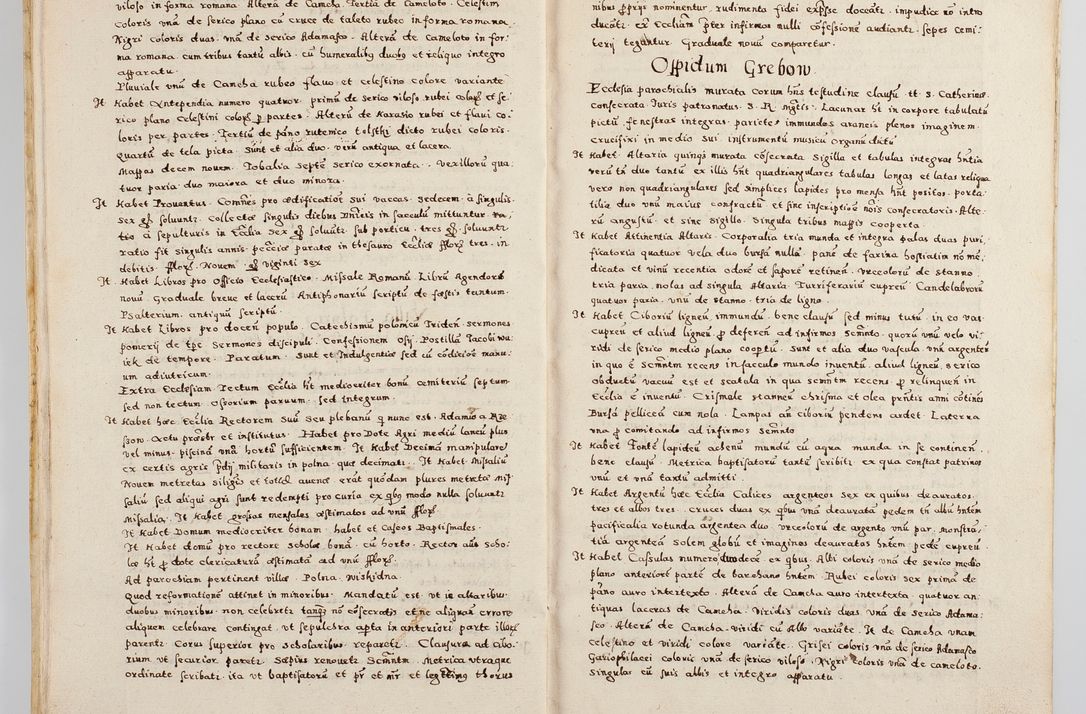 viloso in forma romana Altera de Camcha. Tertia de Cameloto. Celestini
Coloris vna de serico plano cu cruce de taleto rubeo in forma romana
Nigri Coloris duas. vna de Serico Adamasco. Altera de Cameloto in for
ma romana. cum tribus tantu albis. cu humeralibus duobus et reliquo integro
apparatu.
Pluviale vna de Camcha rubeo flavo et celestino colore variante
It Habet Antependia numero quatuor. primu de serico viloso rubei et se
rico plano Celestini per partes. Alteru de Karasio rubei et flavi co
loris per partes. Tertiu de pano rutemico dicto rubei coloris.
Quartu de tela picta. Sunt et alia duo. veru antiqua et lacera.
Mappas decem novem. Tobalia septe serico exornata. Vexilloru qua
tuor paria duo maiora et duo minora.
It Habet Proventus. pro ædificatior sui vaccas sedecem. à singulis
sex soluunt. Collecta singulis diebus in sacculu mittuntur
à sepulturis in Ecclia sex soluut sub porticu. tres soluuntr
ratio fit singulis annis. parata in thesauro Eccliæ tres. in
debitis Novem viginti sex
It Habet Libros pro officio Ecclesiastico. Missale Romanu. Libru Agendoru
novu. Graduale breve et laceru. Antiphonariu scriptu de festis tantum.
Psalterium antiquu scriptu.
It Habet Libros pro docen populo. Catechismu polonicu Triden. sermones
pomerij de tpe Sermones discipuli. Confessionem Osij. Postilla Iacobi wu
iek de tempore. Paratum. Sunt et Indulgentiæ sed cu manu
um adiutricum.
Extra Ecclesiam Tectum Ecclia ht mediocriter bonu cemiteriu septum
sed non tectum Ossorium paruum. sed integrum.
It Habet hæc Ecclia Rectorem suu seu plebanu q nunc est. Adamus a
et institutus. Habet pro Dote Agri mediu laneu plus
vel minus. piscina vna hortu sufficientem. It Habet Decima manipulare
ex certis agris militaris in polna. quæ decimati. It Habet Missaliu
Novem metretas siliginis et avenæ. erat quodam plures metreta mis
saliu sed aliqui agri sunt redempti pro curia ex qbus modo nulla soluuntr
Missalia. It Habet mensales æstimatos ad vnu
It Habet Domum mediocriter bonam. habet et Caseos Baptismales.
It Habet domu pro rectore scholæ. bona. cu horto. Rector aut scho
læ ht pro dote clericatura æstimata ad vnu
Ad parochiam pertinent villæ. Polna. Wiskidna.
Quod reformatione attinet in minoribus. Mandatu est. vt in altaribus.
duobus minoribus. non celebretr tanqz no cosecratis et ne aliquem errore
aliquem celebrare contingat. vt sepulchra aperta in anteriori parte
parentr Corus superior pro scholaribus. reparetr Clausura ad cibo
rium vt securior paretr Sæpius renovetr Scmntm. Metrica vtraque
ordinate scribatr. ita vt baptisatoru et pr et mr et legittimus thorus

nibus nominentur. rudimenta fidei expsse doceatr. impudice no intro
ducatr ex Eccliam pter infirmos nulli cofessione audiantr. sepes cemi
terij tegantur. Graduale novu comparetur.
Oppidum Grebow
Ecclesia parochialis murata corum hns testudine clausu tt. S. Catherinæ
Consecrata Iuris patronatus. S. R. Lacunar ht in corpore tabulatu
pictu fenestras integras. parietes immundos araneis plenos imaginem
crucifixi in medio sui instrumentu musicu Organu dictu
It Habet Altaria quinqz murata cosecrata Sigilla et tabulas integras hntia
veru tn duo tantu ex illis hnt quadriangulares tabulas longas et latas reliqua
vero non quadriangulares sed simplices lapides pro mensa hnt positos. porta
tilia duo vnu maius confractu et sine inscriptione nois consecratoris. Alte
ru angustu et sine sigillo. Singula tribus mappis cooperta.
It Habet Attinentia Altaris. Corporalia tria munda et integra palas duas puri
ficatoria quatuor vela duo bursa nulla. pane de farina hostiatim no me
dicata et vinu recentia odore et sapore retinen. Vrceoloru de stanno.
tria paria. nolas ad singula Altaria. Turriferariu cupreu. Candelabroru
quatuor paria. vnu de stanno. tria de ligno.
It Habet Ciboriu ligneu immundu. bene clausu sed minus tutu. in eo vas
cupreu et aliud ligneu p deferen ad infirmos scmnto. quoru vnu velo vi
ridi de serico medio plano coopertu. Sunt et alia duo vascula vna argenteu
in quo e scmntm recens in facculo mundo inuentu. aliud ligneu. serico
obductu vacuu est et scatula in qua scmntm recens p relinquen in
Ecclia e inuentu. Crismale stanneu chrisma et olea prntis anni cotines
Bursa pellicea cum nola. Lampas an ciboriu pendens ardet. Laterna
vna p comitando ad infirmos scmnto
It Habet Fonte lapideu acheneu mundu cu aqua munda in se continen.
bene clausu. Metrica baptisatoru tantu scribitr. ex qua constat patrinos
vnu et vna tantu admitti.
It Habet Argentu hæc Ecclia Calices argenteos sex ex quibus deauratos.
tres et albos tres. Cruces duas ex qbus vna deaurata pedem tn albu hntem
pacificalia rotunda argentea duo. Vrceoloru de argento vnu par. monstra
tia argentea solem globu et imagines deauratos hntem pede cupreu.
It Habet Casulas numero duodece ex qbus. Albi coloris vna de serico medio
plano anteriore parte de barchano hntem. Rubei coloris sex prima de
pano auro intertexto. Altera de Camcha auro intertexta quatuor an
tiquas laceras de Camcha. Viridis coloris duas vna de serico Adama
sco. Altera de Camcha. viridi cu Albo variate. It de Camcha vnam
celestino et viridi colore variate. Grisei coloris vna de serico Adamasco
Gariophilacei coloris vna de serico viloso. Nigri coloris vna de cameloto.
Singulas cu suis albis et integro apparatu.